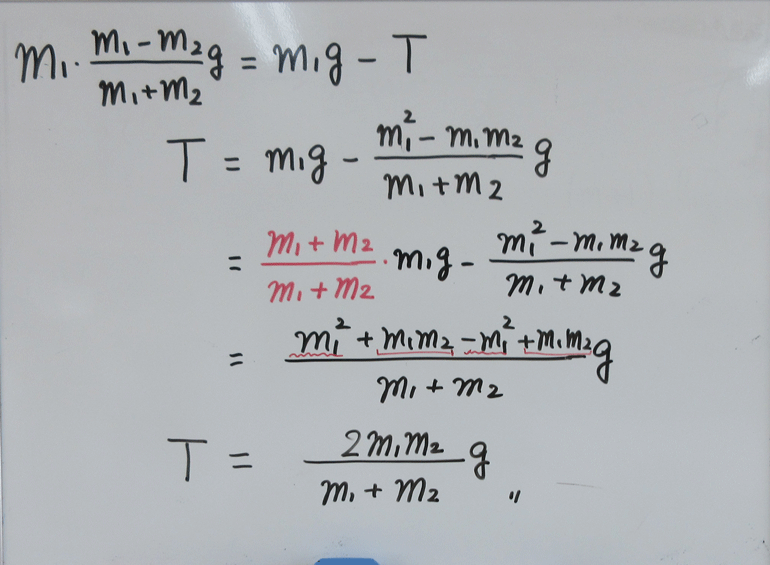 m₁·(m₁-m₂)/(m₁+m₂)g = m₁g - T
T = m₁g - (m₁²-m₁m₂)/(m₁+m₂)g
= (m₁+m₂)/(m₁+m₂)·m₁g - (m₁²-m₁m₂)/(m₁+m₂)g
= (m₁²+m₁m₂-m₁²+m₁m₂)/(m₁+m₂)g
T = 2m₁m₂/(m₁+m₂)g〃